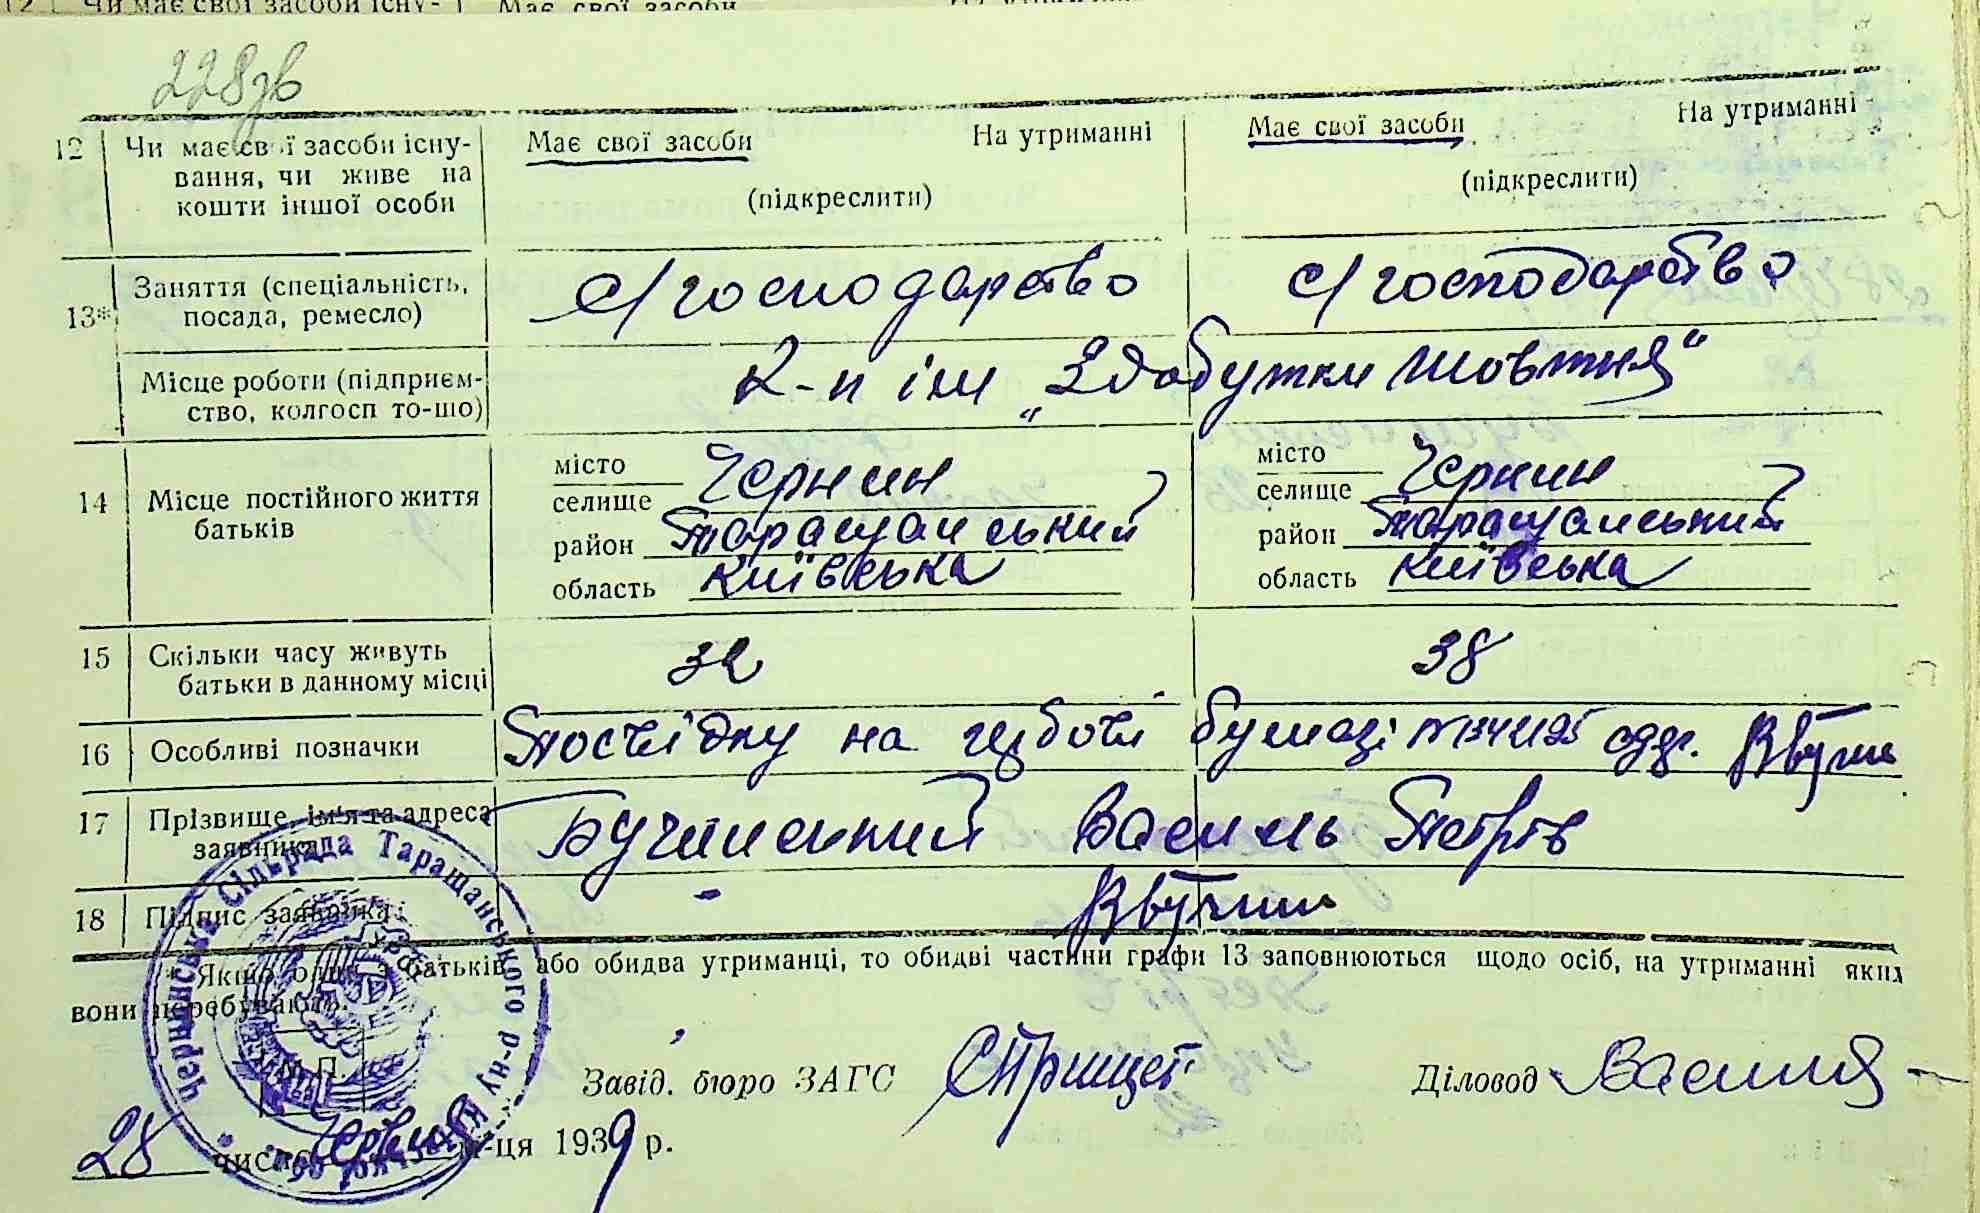 Чи має свої засоби існу- Має свої засоби На утриманні
228зв
12 Чи має свої засоби існу- Має свої засоби На утриманні Має свої засоби На утриманні
вання, чи живе на
кошти іншої особи (підкреслити) (підкреслити)
13* Заняття (спеціальність, с/господарство с/господарство
посада, ремесло)
Місце роботи (підприєм- К-п ім „Здобутки Жовтня"
ство, колгосп то-що)
14 Місце постійного життя місто місто
батьків селище Чернин селище Чернин
район Таращанський район Таращанський
область Київська область Київська
15 Скільки часу живуть 32 38
батьки в данному місці
16 Особливі позначки Посвідку на гербові бумазі
17 Прізвище, ім'я та адреса Бучинський Василь Петрів
заявника
18 Підпис заявника
* Якщо один з батьків або обидва утриманці, то обидві частини графи 13 заповнюються щодо осіб, на утриманні яких
вони перебувають.
Чернинська Сільрада Таращанського р-ну
М.П.
Завід. бюро ЗАГС Діловод
28 число Червня м-ця 1939 р.